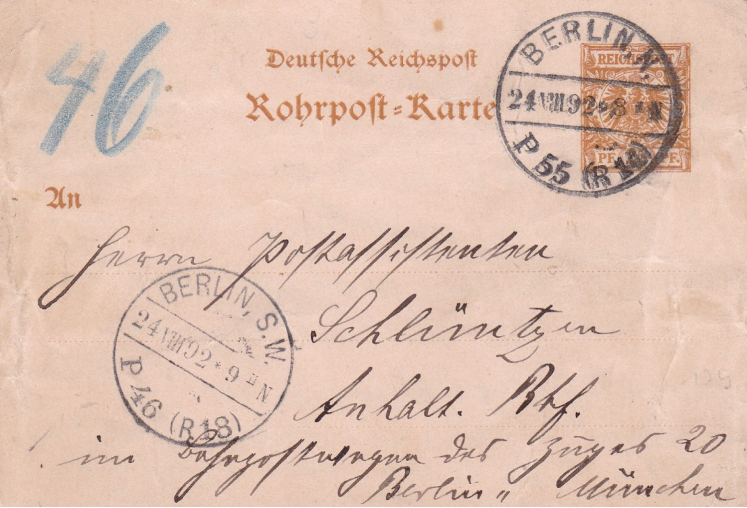 46
Deutsche Reichspost
Rohrpost-Karte
BERLIN, N.
24 VIII 92 * 8 * N
P 55 (R 14)
REICHS
PF PF.
An
Herrn Postassistenten
BERLIN, S.W.
24 VIII 92 * 9 N
P 46 (R 18)
Schlüntzen
Anhalt. Bhf.
im Bahnpostwagen des Zuges 20
Berlin " München